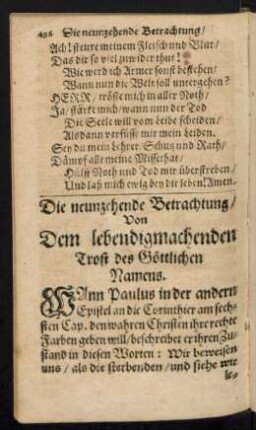 496 Die neunzehende Betrachtung /
Ach! steure meinem Fleisch und Blut /
Das dir so viel zuwider thut!
Wie werd ich Armer sonst bestehen /
Wann nun die Welt soll untergehen?
HERR / tröste mich in aller Noth /
Ja / stärke mich / wann nun der Tod
Die Seele will vom Leibe scheiden /
Alsdann versüsse mir mein Leiden.
Sey du mein Lehrer / Schutz und Rath /
Dämpf alle meine Missethat /
Hülff Noth und Tod mir überstreben /
Und laß mich ewig bey dir leben! Amen.
Die neunzehende Betrachtung /
Von
Dem lebendigmachenden
Trost des Göttlichen
Namens.
WAnn Paulus in der andern
Epistel an die Corinthier am sechs-
sten Cap. den wahren Christen ihre rechte
Farben geben will / beschreibet er ihren Zu-
stand in diesen Worten: Wir beweisen
uns / als die sterbenden / und siehe wir
le-